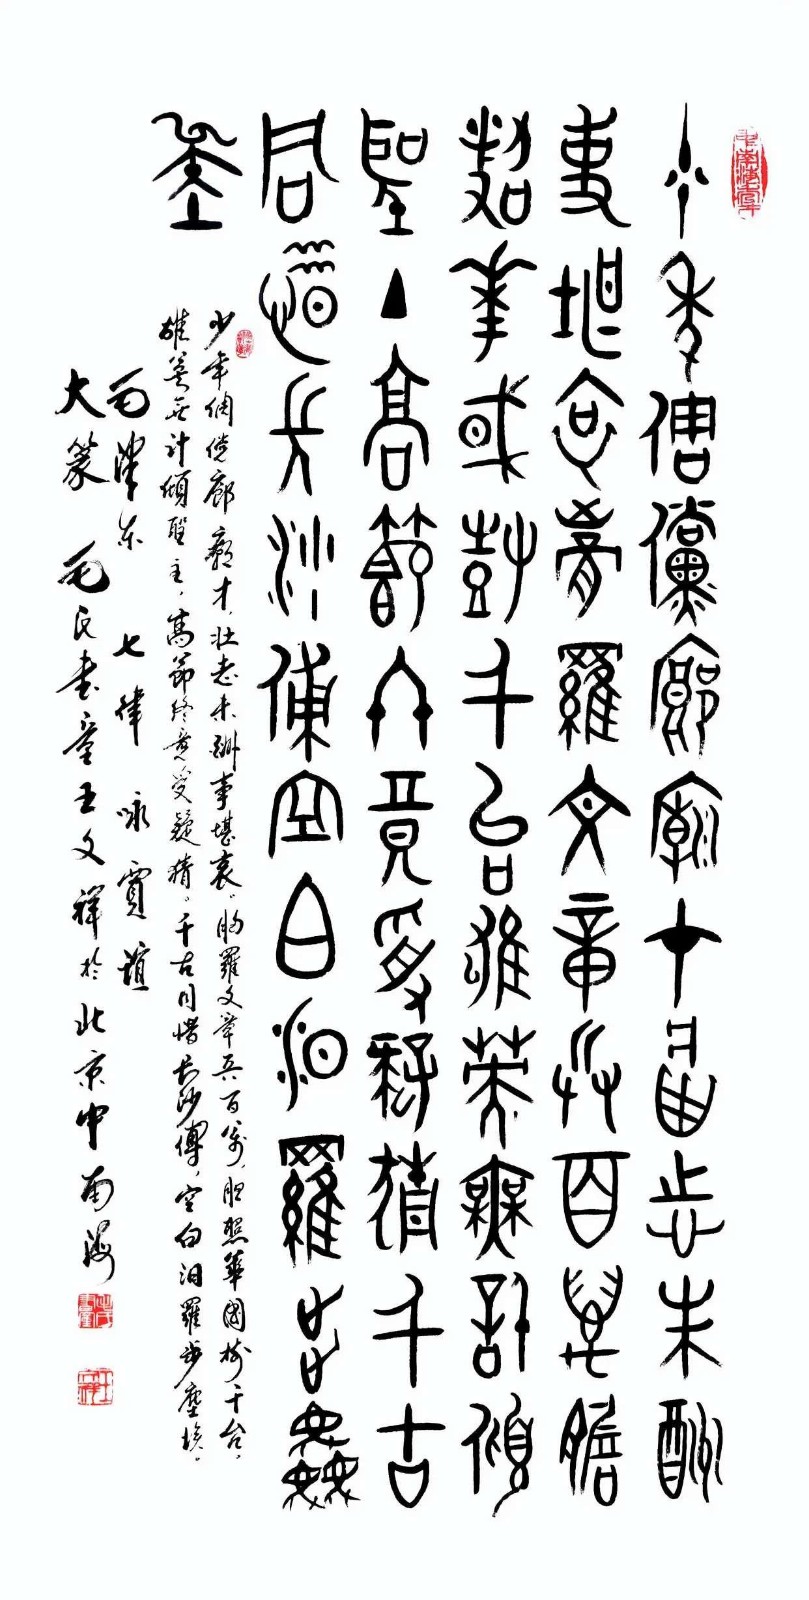 少年倜儻廊廟才壯志未酬
事堪哀胸羅文章兵百萬膽
照華國樹千台雄英無計傾
聖主高節終竟受疑猜千古
同惜長沙傅空白汨羅步塵
埃
少年倜傥廊廟才，壮志未酬事堪哀。胸羅文章兵百万，胆照華國树千台。
雄英无计倾聖主，高節终竟受疑猜。千古同惜长沙傅，空白汨羅步塵埃。
毛澤东 七律 咏賈誼
大篆 毛氏书童王文祥於北京中南海